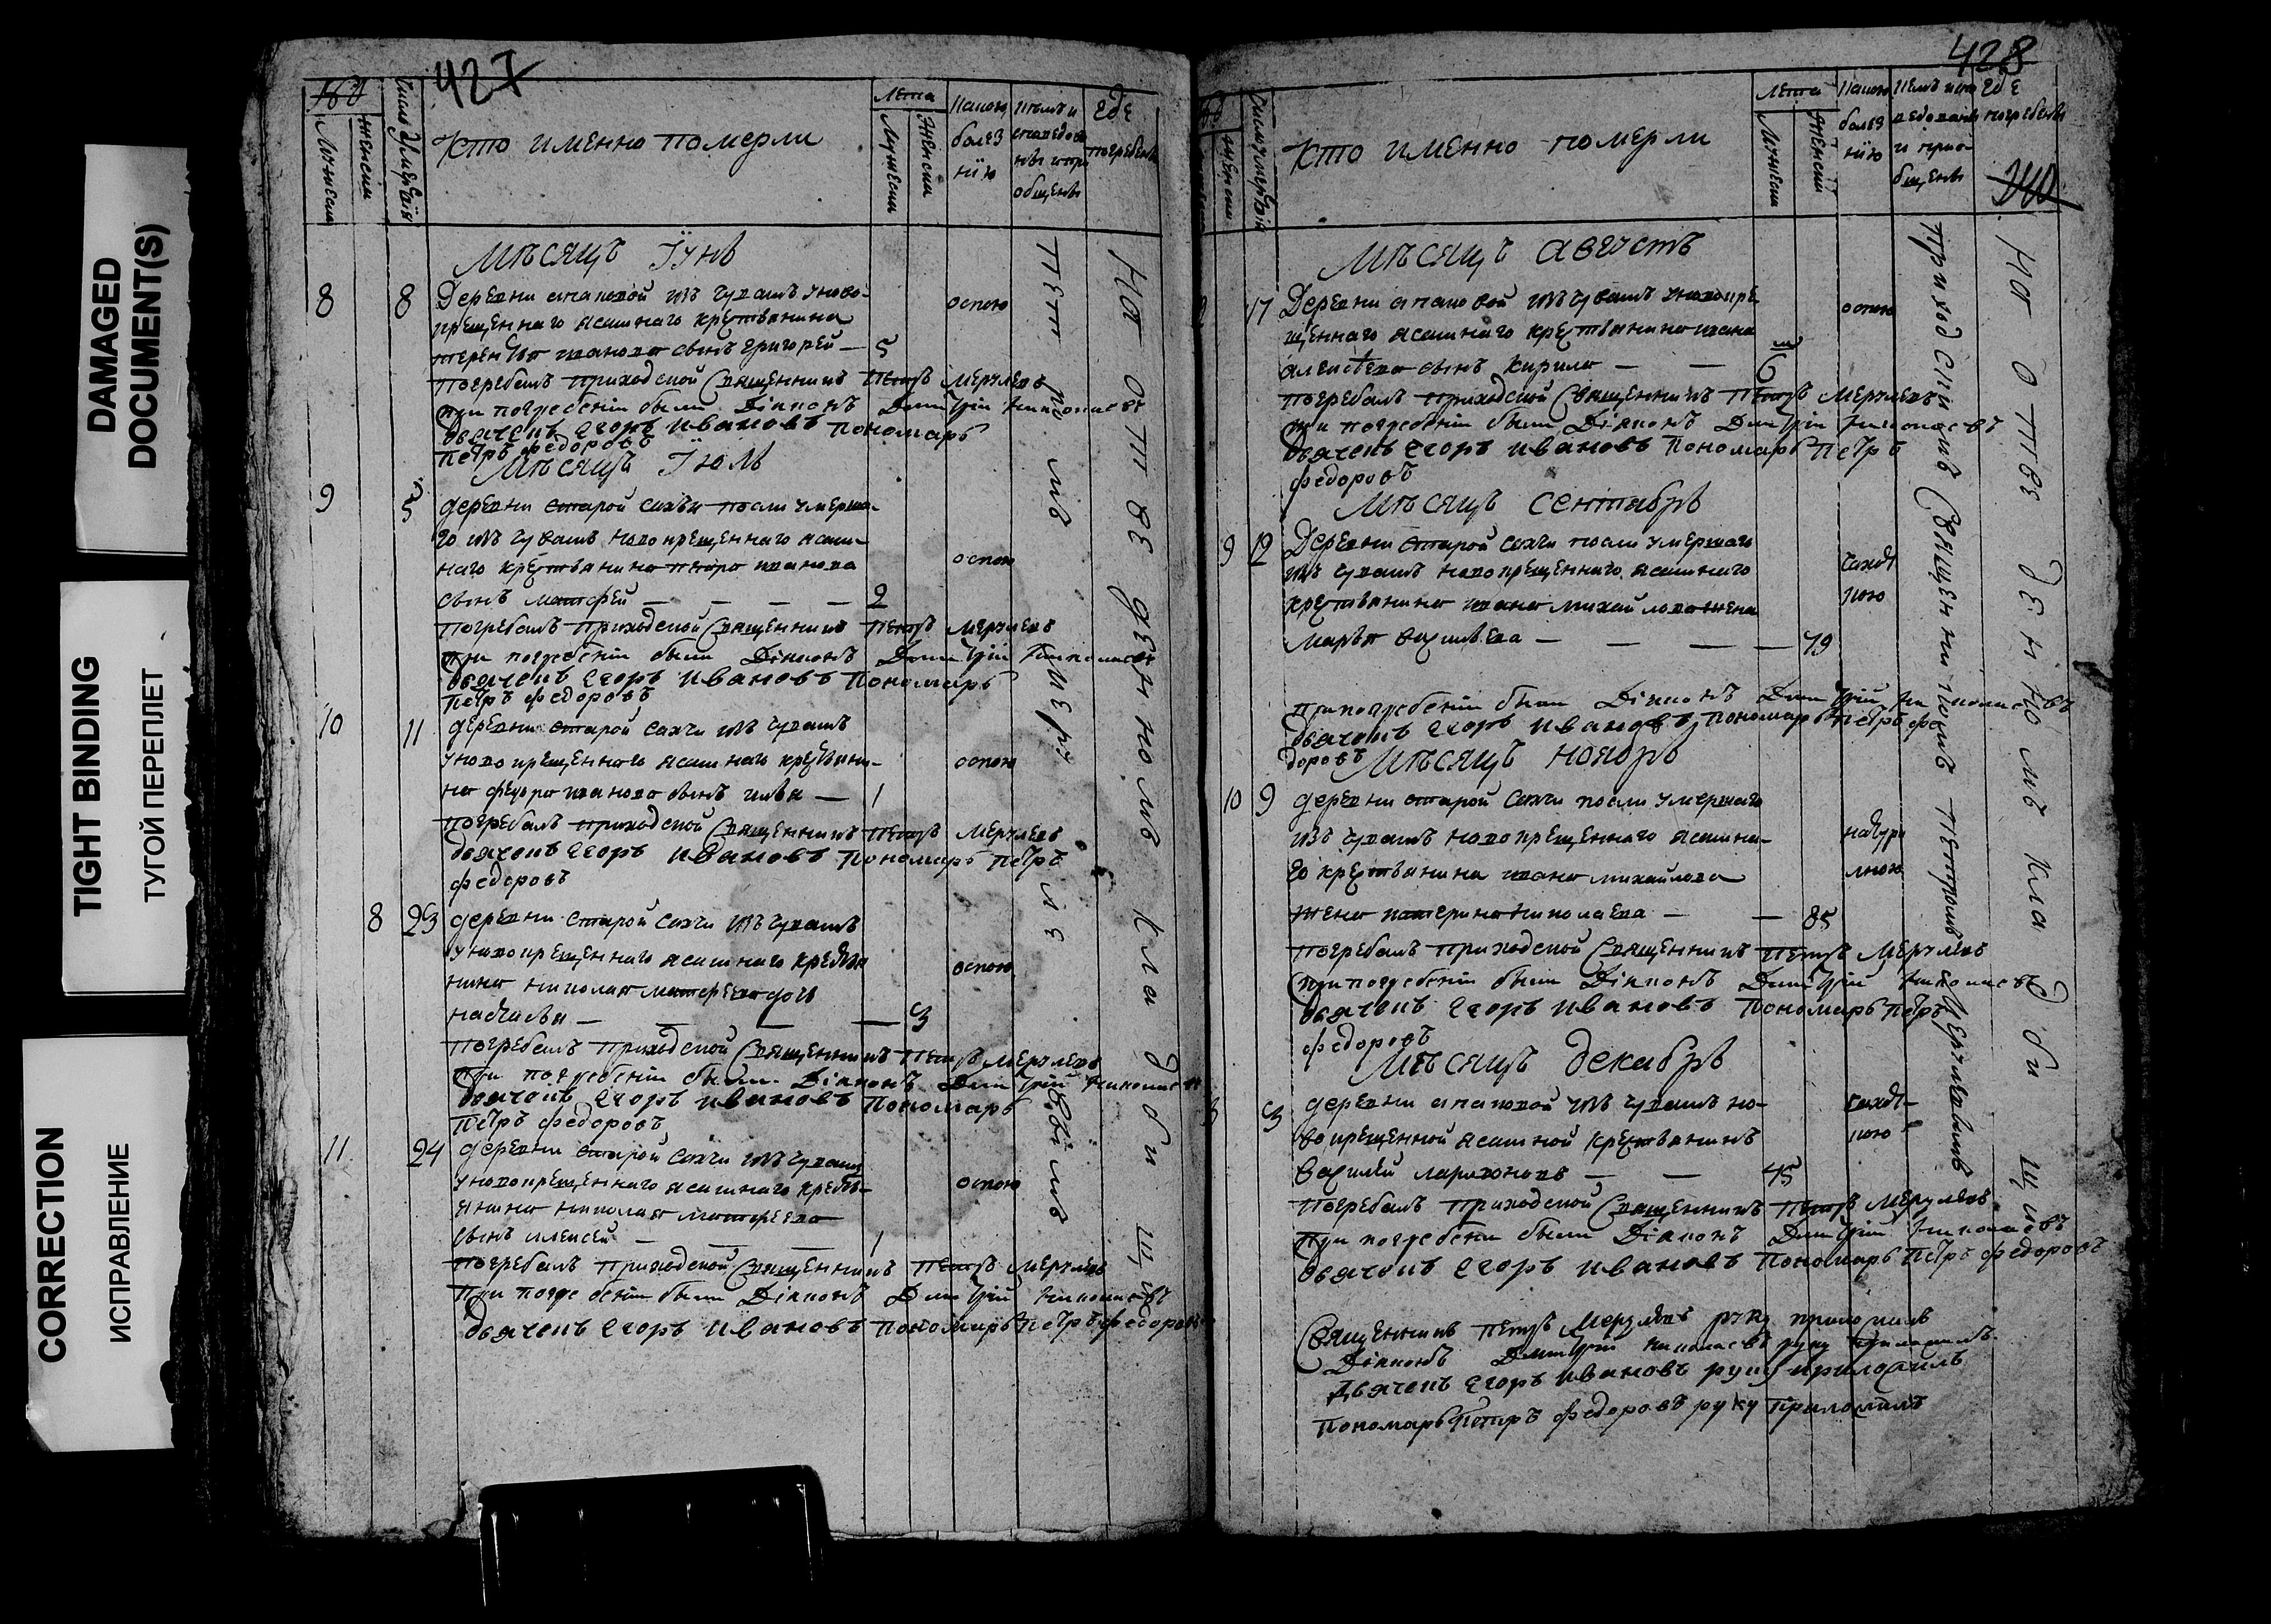 DAMAGED
DOCUMENT(S)
TIGHT BINDING
ТУГОЙ ПЕРЕПЛЕТ
CORRECTION
ИСПРАВЛЕНИЕ
427
Число умершiя
Мужеска
Женска
Кто именно померли
Лета
Мужеска
Женска
Какою
болез
нiю
общены
где
погребены
Мѣсяцъ Iунь
8 8 Деревни изъ чувашъ у ново-
крещеннаго ясашнаго крестьянина
терентья иванова сынъ григорей — 5
оспою
погребалъ приходской священникъ Петръ Меркульевъ
при погребенiи были Дiаконъ Димитрiй Николаевъ
дьячекъ Егоръ Ивановъ Пономарь
Петръ Федоровъ
Мѣсяцъ Iюль
9 5 деревни старой сахчи после умерша-
го изъ чувашъ новокрещеннаго ясаш-
наго крестьянина петра иванова
сынъ матфей — — — — 2
оспою
погребалъ приходской священникъ Петръ Меркульевъ
при погребенiи были Дiаконъ Димитрiй Николаевъ
дьячекъ Егоръ Ивановъ Пономарь
Петръ Федоровъ
10 11 деревни старой сахчи изъ чувашъ
у новокрещеннаго ясашнаго крестьяни-
на федора иванова сынъ илья — 1
оспою
погребалъ приходской священникъ Петръ Меркульевъ
дьячекъ Егоръ Ивановъ Пономарь Петръ
Федоровъ
8 23 деревни старой сахчи изъ чувашъ
у новокрещеннаго ясашнаго крестья
нина николая матфеева дочь
настасья — — — — 3
оспою
погребалъ приходской священникъ Петръ Меркульевъ
при погребенiи были Дiаконъ Димитрiй Николаевъ
дьячекъ Егоръ Ивановъ Пономарь
Петръ Федоровъ
11 24 деревни старой сахчи изъ чувашъ
у новокрещеннаго ясашнаго кресть-
янина николая матфеева
сынъ алексей — — — 1
оспою
погребалъ приходской священникъ Петръ Меркульевъ
при погребенiи были Дiаконъ Димитрiй Николаевъ
дьячекъ Егоръ Ивановъ Пономарь Петръ Федоровъ
На отведенномъ кладбищи
428
Кто именно померли
Лета
Мужеска
Женска
Какою
болез
нiю
где
погребены
Мѣсяцъ Августъ
17 Деревни изъ чувашъ у новокре
щеннаго ясашнаго крестьянина ивана
алексеева сынъ кирила — — 6
оспою
погребалъ приходской священникъ Петръ Меркульевъ
при погребенiи были Дiаконъ Димитрiй Николаевъ
дьячекъ Егоръ Ивановъ Пономарь Петръ
Федоровъ
Мѣсяцъ Сентябрь
9 12 Деревни старой сахчи после умершаго
изъ чувашъ новокрещеннаго ясашнаго
крестьянина ивана михайлова жена
марья васильева — — — 79
погребенiи были Дiаконъ Димитрiй Николаевъ
дьячекъ Егоръ Ивановъ Пономарь Петръ Фе
доровъ
Мѣсяцъ Ноябрь
10 9 деревни старой сахчи после умершаго
изъ чувашъ новокрещеннаго ясашна-
го крестьянина ивана михайлова
жена катерина николаева — — 85
натура
льною
погребалъ приходской священникъ Петръ Меркульевъ
при погребенiи были Дiаконъ Димитрiй Николаевъ
дьячекъ Егоръ Ивановъ Пономарь Петръ
Федоровъ
Мѣсяцъ Декабрь
3 деревни изъ чувашъ но-
вокрещенной ясашной крестьянинъ
василей ларионовъ — — 45
погребалъ приходской священникъ Петръ Меркульевъ
при погребенiи были Дiаконъ Димитрiй Николаевъ
дьячекъ Егоръ Ивановъ Пономарь Петръ Федоровъ
приходскимъ священникомъ Петромъ Меркульевымъ
На отведенномъ кладбищи
Священникъ Петръ Меркульевъ руку приложилъ
Дiаконъ Димитрiй Николаевъ руку приложилъ
Дьячекъ Егоръ Ивановъ руку приложилъ
Пономарь Петръ Федоровъ руку приложилъ